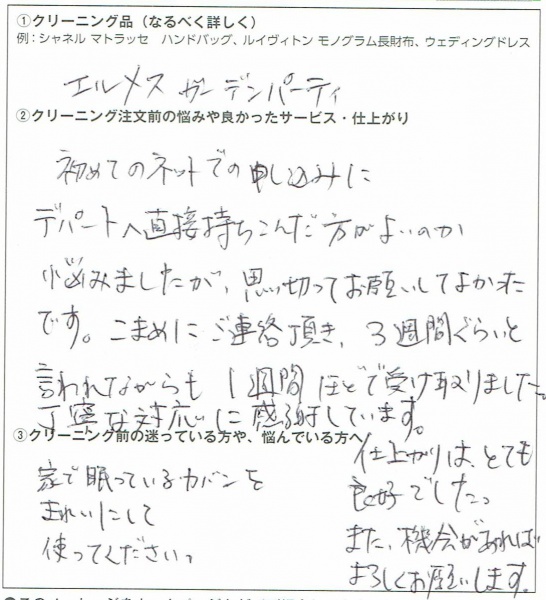 ①クリーニング品（なるべく詳しく）
例：シャネル マトラッセ　ハンドバッグ、ルイヴィトン モノグラム長財布、ウェディングドレス
エルメス ガーデンパーティ
②クリーニング注文前の悩みや良かったサービス・仕上がり
初めてのネットでの申し込みに
デパートへ直接持ちこんだ方がよいのか
悩みましたが、思い切ってお願いしてよかった
です。こまめにご連絡頂き、3週間ぐらいと
言われてながらも 1週間ほどで受け取りました。
丁寧な対応に感謝しています。
③クリーニング前の迷っている方や、悩んでいる方へ
家で眠っているカバンを
きれいにして
使ってください。
仕上がりは、とても
良好でした。
また、機会があれば
よろしくお願いします。